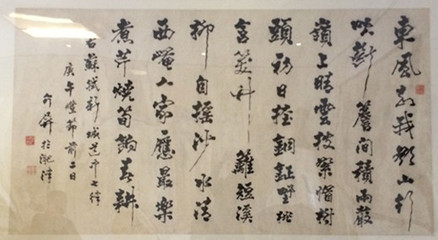 東風知我欲山行
吹斷簷間積雨聲
嶺上晴雲披絮帽樹
頭初日挂銅鉦野桃
含笑竹籬短溪
柳自搖沙水清
西崦人家應最樂
煮芹燒筍餉春耕
右蘇軾新城道中七律
庚午燈節前二日
於滬濱